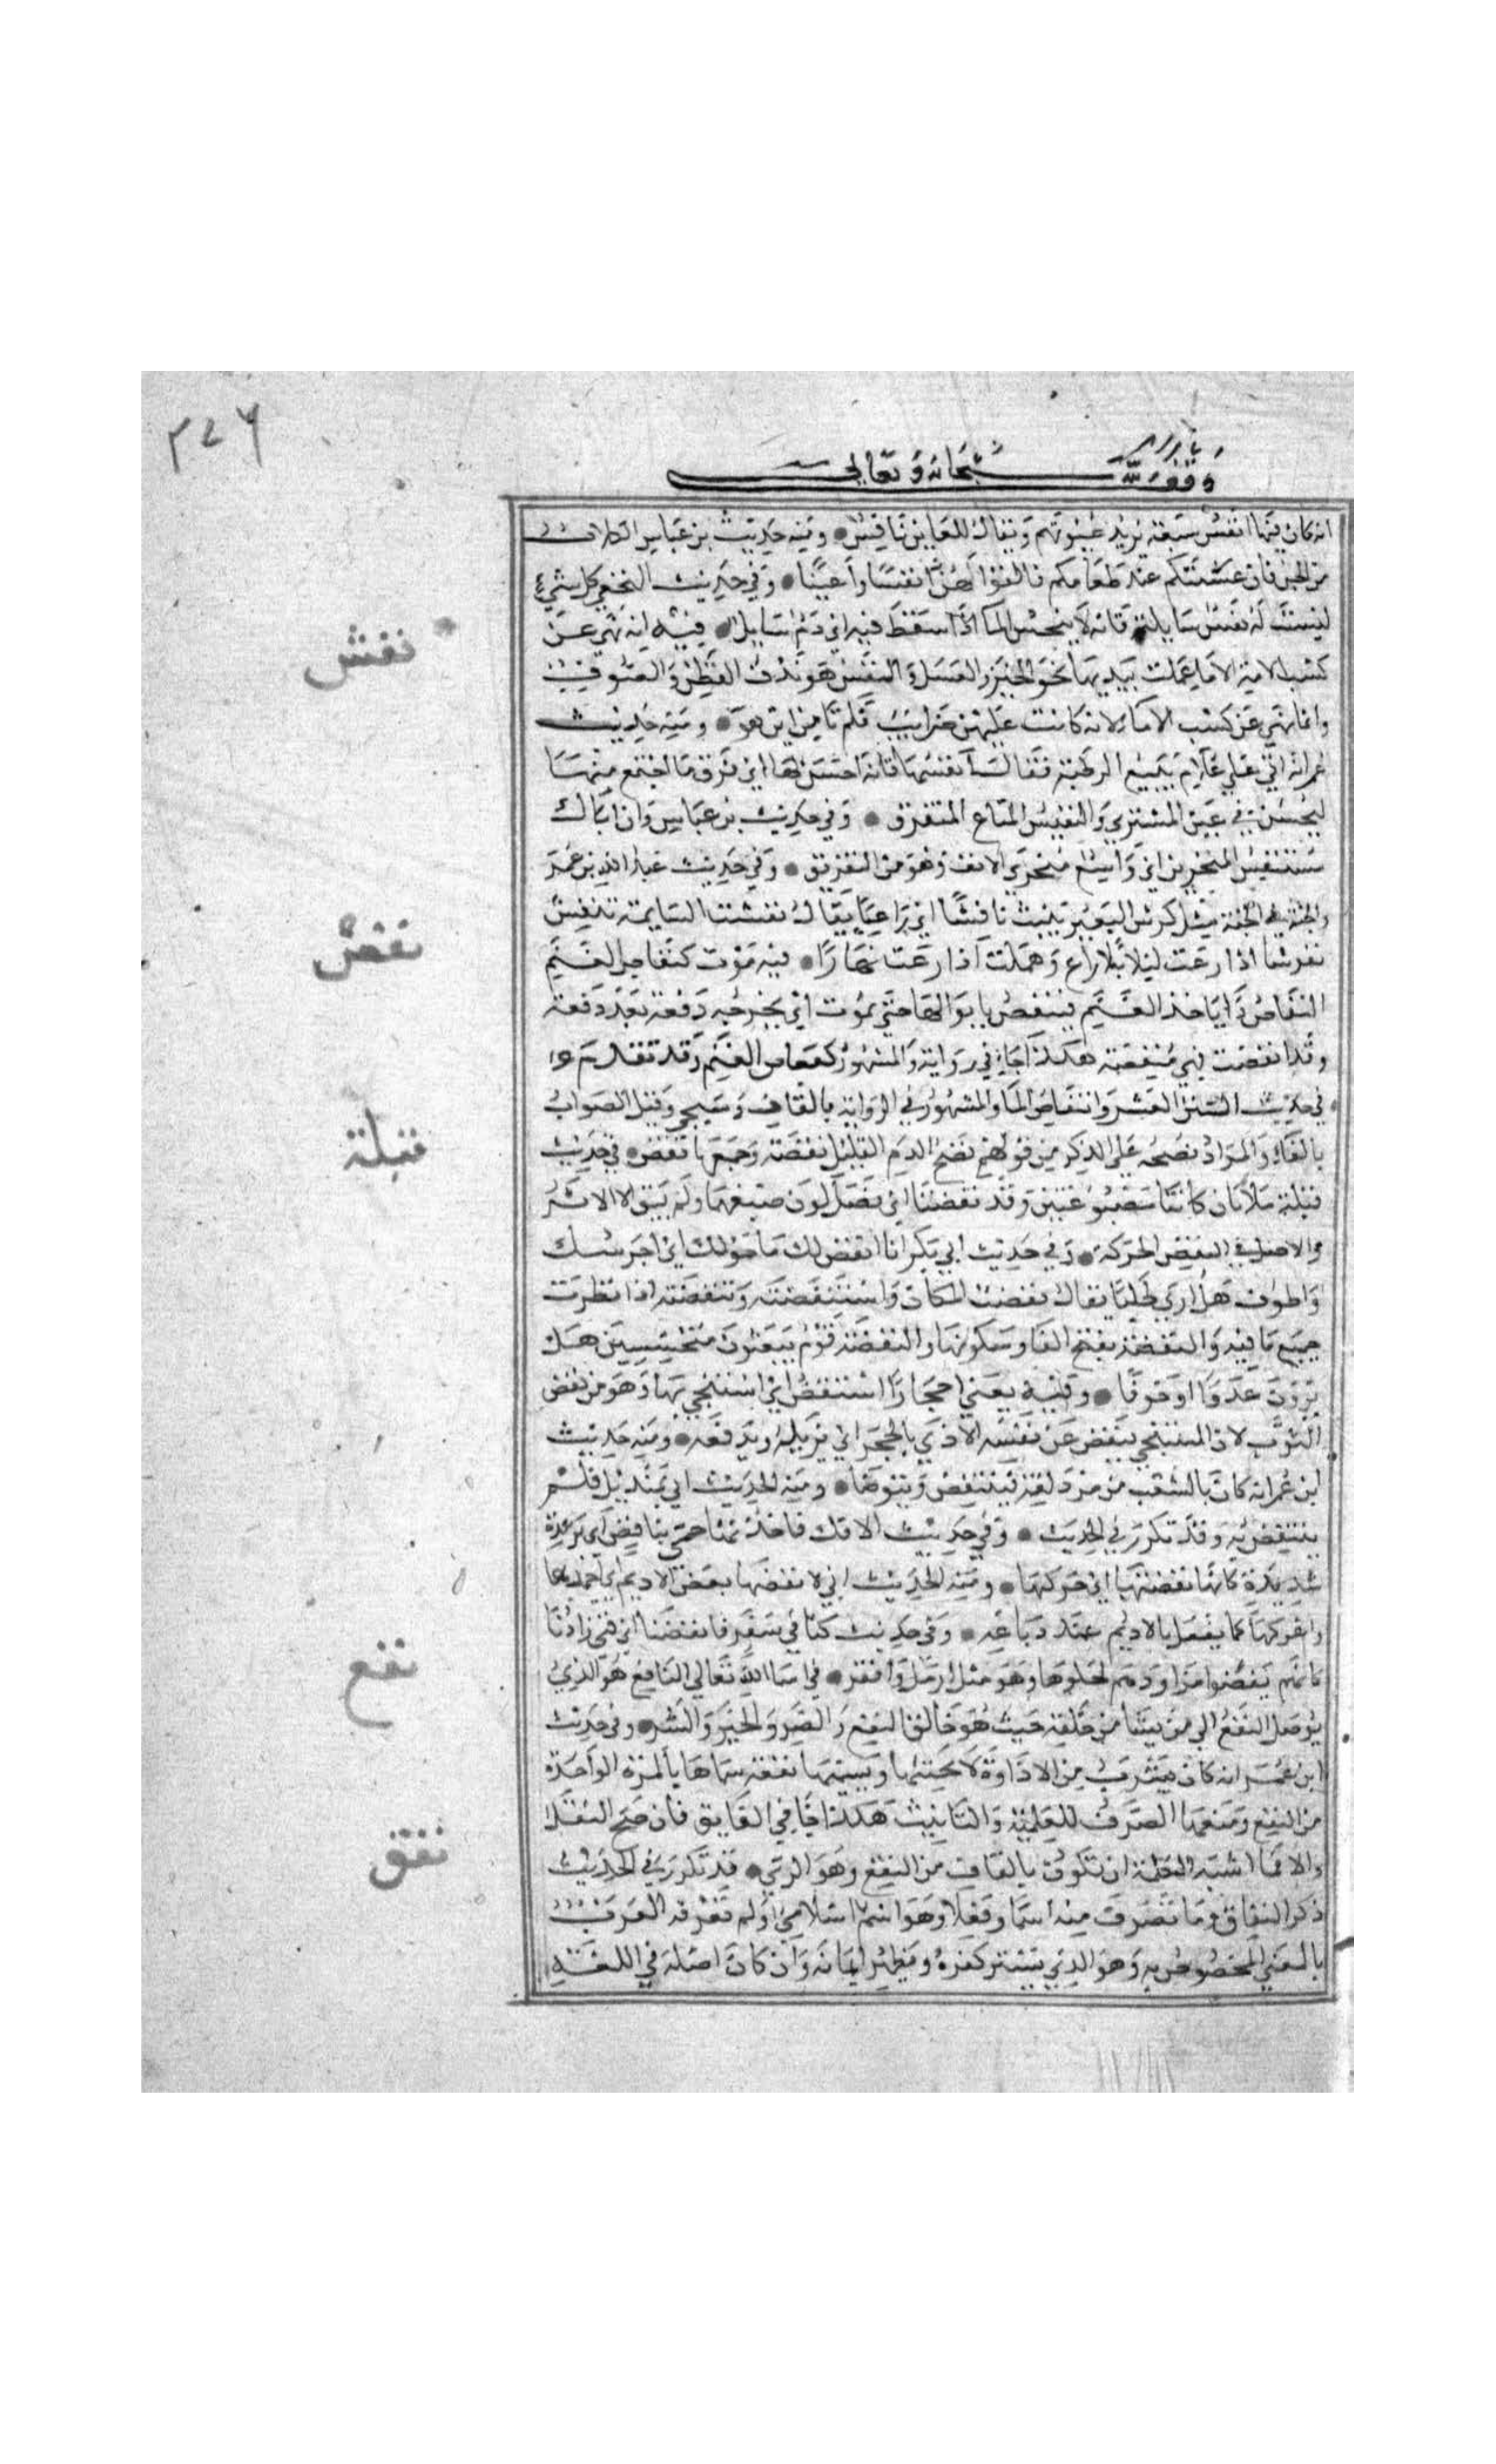 ٣٤٦
وقف لله سبحانه وتعالى
انه كان فيها انفس سبعة يريد عيونهم ويقال للعاين نافس ومنه حديث بن عباس الكلاب
من الجن فان غشيتكم عند طعامكم فالقوا لهن فان لهن انفسا واعينا وفي حديث النخعي كل شيء
ليست له نفس سايلة فانه لا ينجس الماء اذا سقط فيه اي دم سايل فيه انه نهى عن
نفش
كسب الامة الا ما عملت بيديها نحو الخبز والغسل والنفش هو ندف القطن والصوف
وانما نهي عن كسب الاما لانه كانت عليهن ضرايب فلم تامن ومنه حديث
عمر انه اتى على غلام يبيع الرطبة فقال انفشها فانه احسن لها اي فرق ما اجتمع منها
ليحسن في عين المشتري والنفيش المتاع المتفرق وفي حديث بن عباس وان اتاك
منتفش المنخرين اي واسع منخري الانف وهو من التفريق وفي حديث عبد الله بن عمر
والحبة في الجنة مثل كرش البعير يبيت نافشا اي راعيا يقال نفشت السايمة تنفش
نفوشا اذا رعت ليلا بلا راع وهملت اذا رعت نهارا فيه موت كنفاص الغنم
نفص
النفاص دا ياخذ الغنم فتنفص بابوالها حتى تموت اي يخرجه دفعة بعد دفعة
وقد انفصت فهي منفصة هكذا جا في رواية والمشهور كقعاص الغنم وقد تقدم
في حديث السنن العشر وانتفاص الما والمشهور في الرواية بالقاف وسيجي وقيل الصواب
بالفاء والمراد نضحه على الذكر من قولهم نضح الدم القليل نفصة وجمعها نفص في حديث
قيلة
قيلة ملاتان كانتا مصبوغتين وقد نفضتا اي نصل لون صبغهما ولم يبق الا الاثر
والاصل في النفض الحركة وفي حديث ابي بكر انا انفض لك ما حولك اي احرسك
واطوف هل ارى طلبا يقال نفضت المكان واستنفضته وتنفضته اذا نظرت
جميع ما فيه والنفضة بفتح الفا وسكونها والنفضة قوم يبعثون متجسسين هل
يرون عدوا او خوفا وفيه يعني احجارا استنفض اي استنجي بها وهو من نفض
الثوب لان المستنجي ينفض عن نفسه الاذى بالحجر اي يزيله ويدفعه ومنه حديث
ابن عمر انه كان بالشعب من مزدلفة فينتفض ويتوضا ومنه الحديث اتي بمنديل فلم
ينتفض به وقد تكرر في الحديث وفي حديث الافك فاخذتها حمى بنافض اي برعدة
شديدة كانها نفضتها اي حركتها ومنه الحديث اني لا نفضها نفض الاديم اي اجهدها
واعركها كما يفعل بالاديم عند دباغه وفي حديث كنا في سفر فانفضنا اي فني زادنا
كانهم نفضوا مزاودهم لخلوها وهو مثل ارمل واقفر في اسما الله تعالى النافع هو الذي
نفع
يوصل النفع الى من يشا من خلقه حيث هو خالق النفع والضر والخير والشر وفي حديث
ابن عمر انه كان يشرب من الاداوة لا يخنثها ويسميها نفعة سماها بالمرة الواحدة
من النفع ومنعها الصرف للعلمية والتانيث هكذا جا في الفايق فان صح النقل
والا فما اشبه الكلمة ان تكون بالقاف من النقع وهو الري قد تكرر في الحديث
نفق
ذكر النفاق وما تصرف منه اسما وفعلا وهو اسم اسلامي لم تعرفه العرب
بالمعنى المخصوص به وهو الذي يستر كفره ويظهر ايمانه وان كان اصله في اللغة